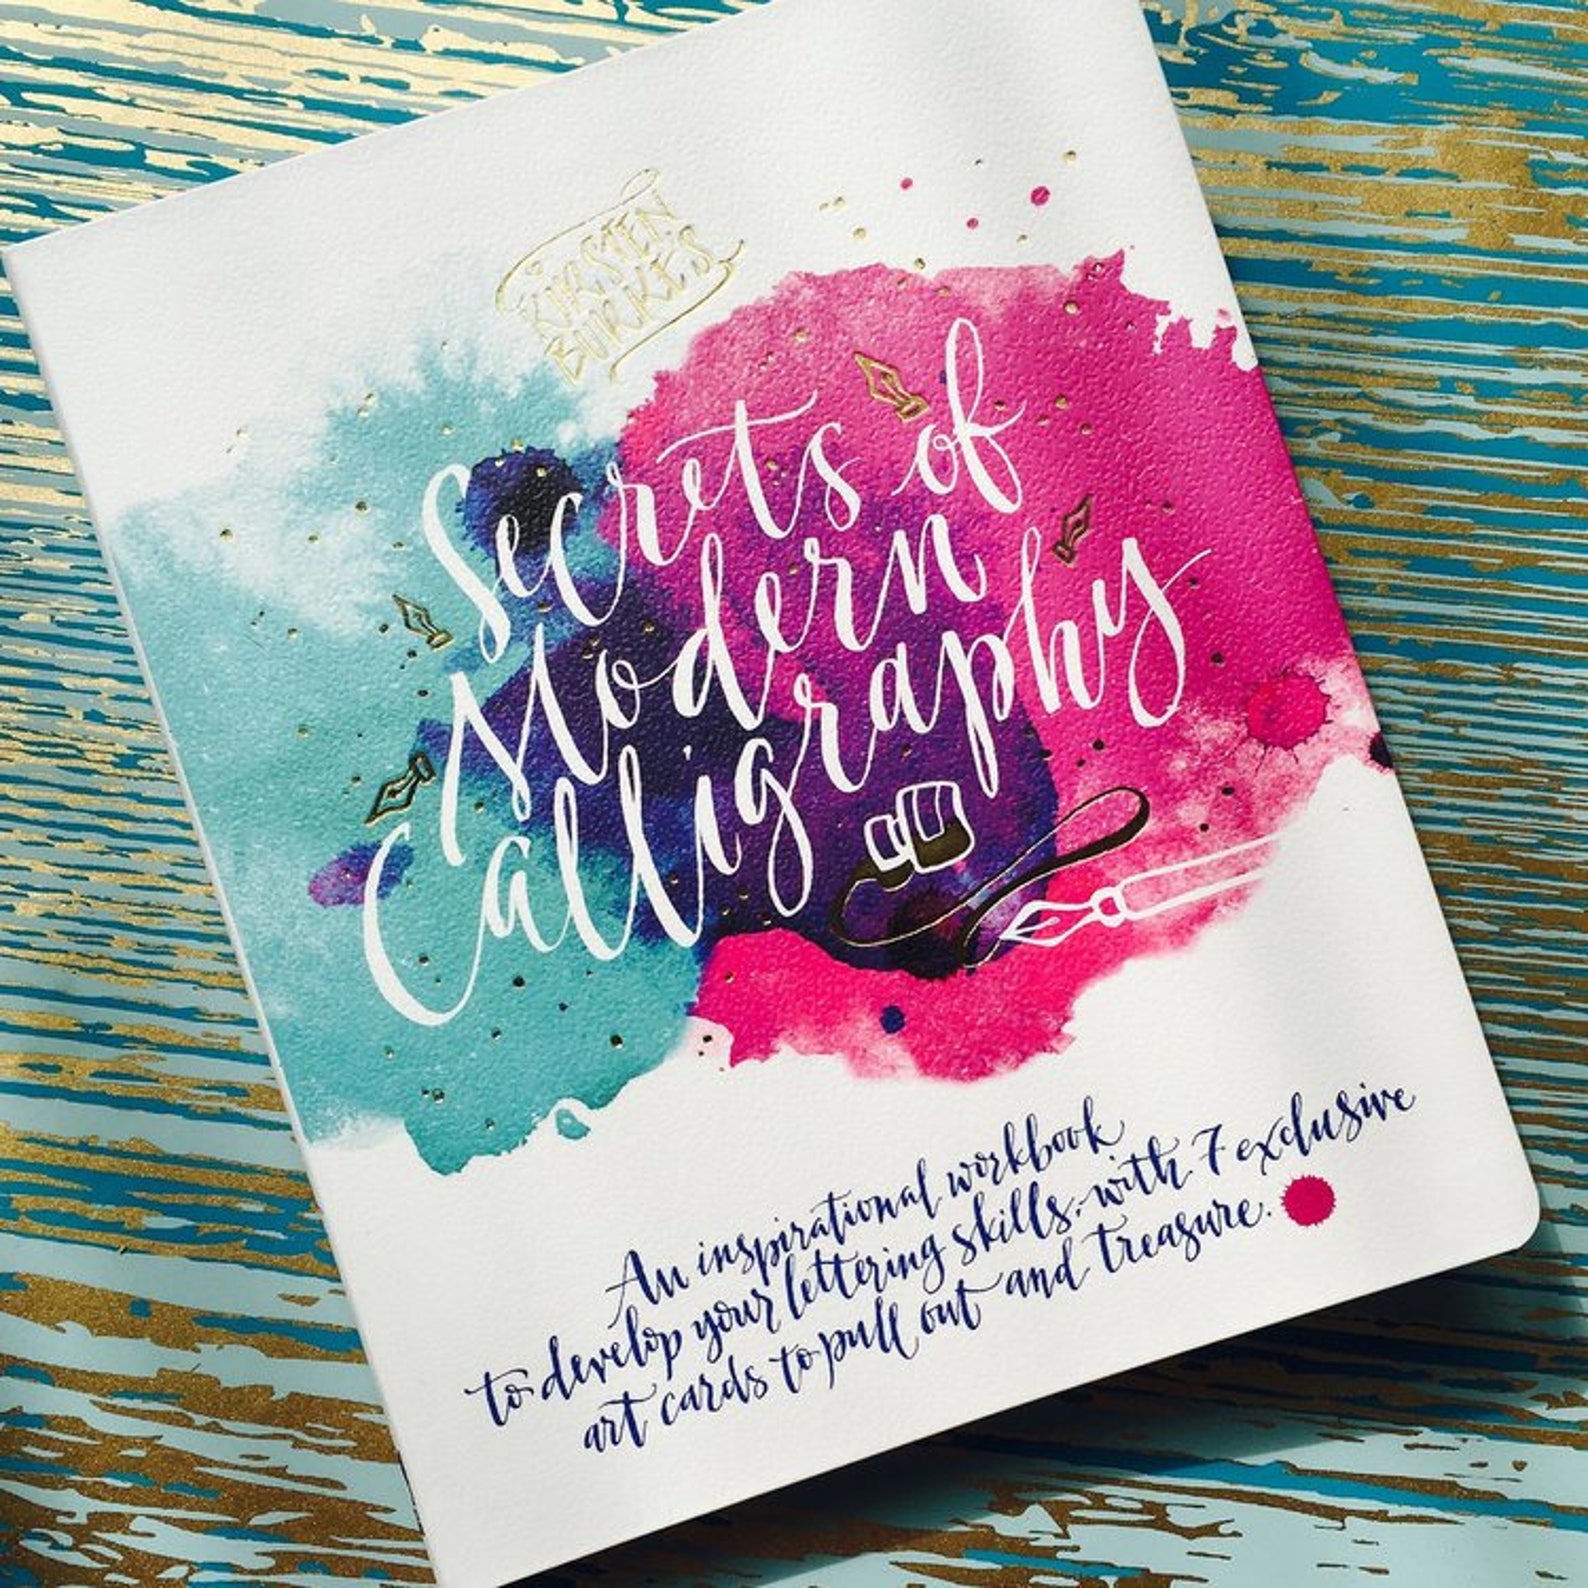 KIRSTEN
BURKE'S
Secrets of
Modern
Calligraphy
An inspirational workbook
to develop your lettering skills, with 7 exclusive
art cards to pull out and treasure.